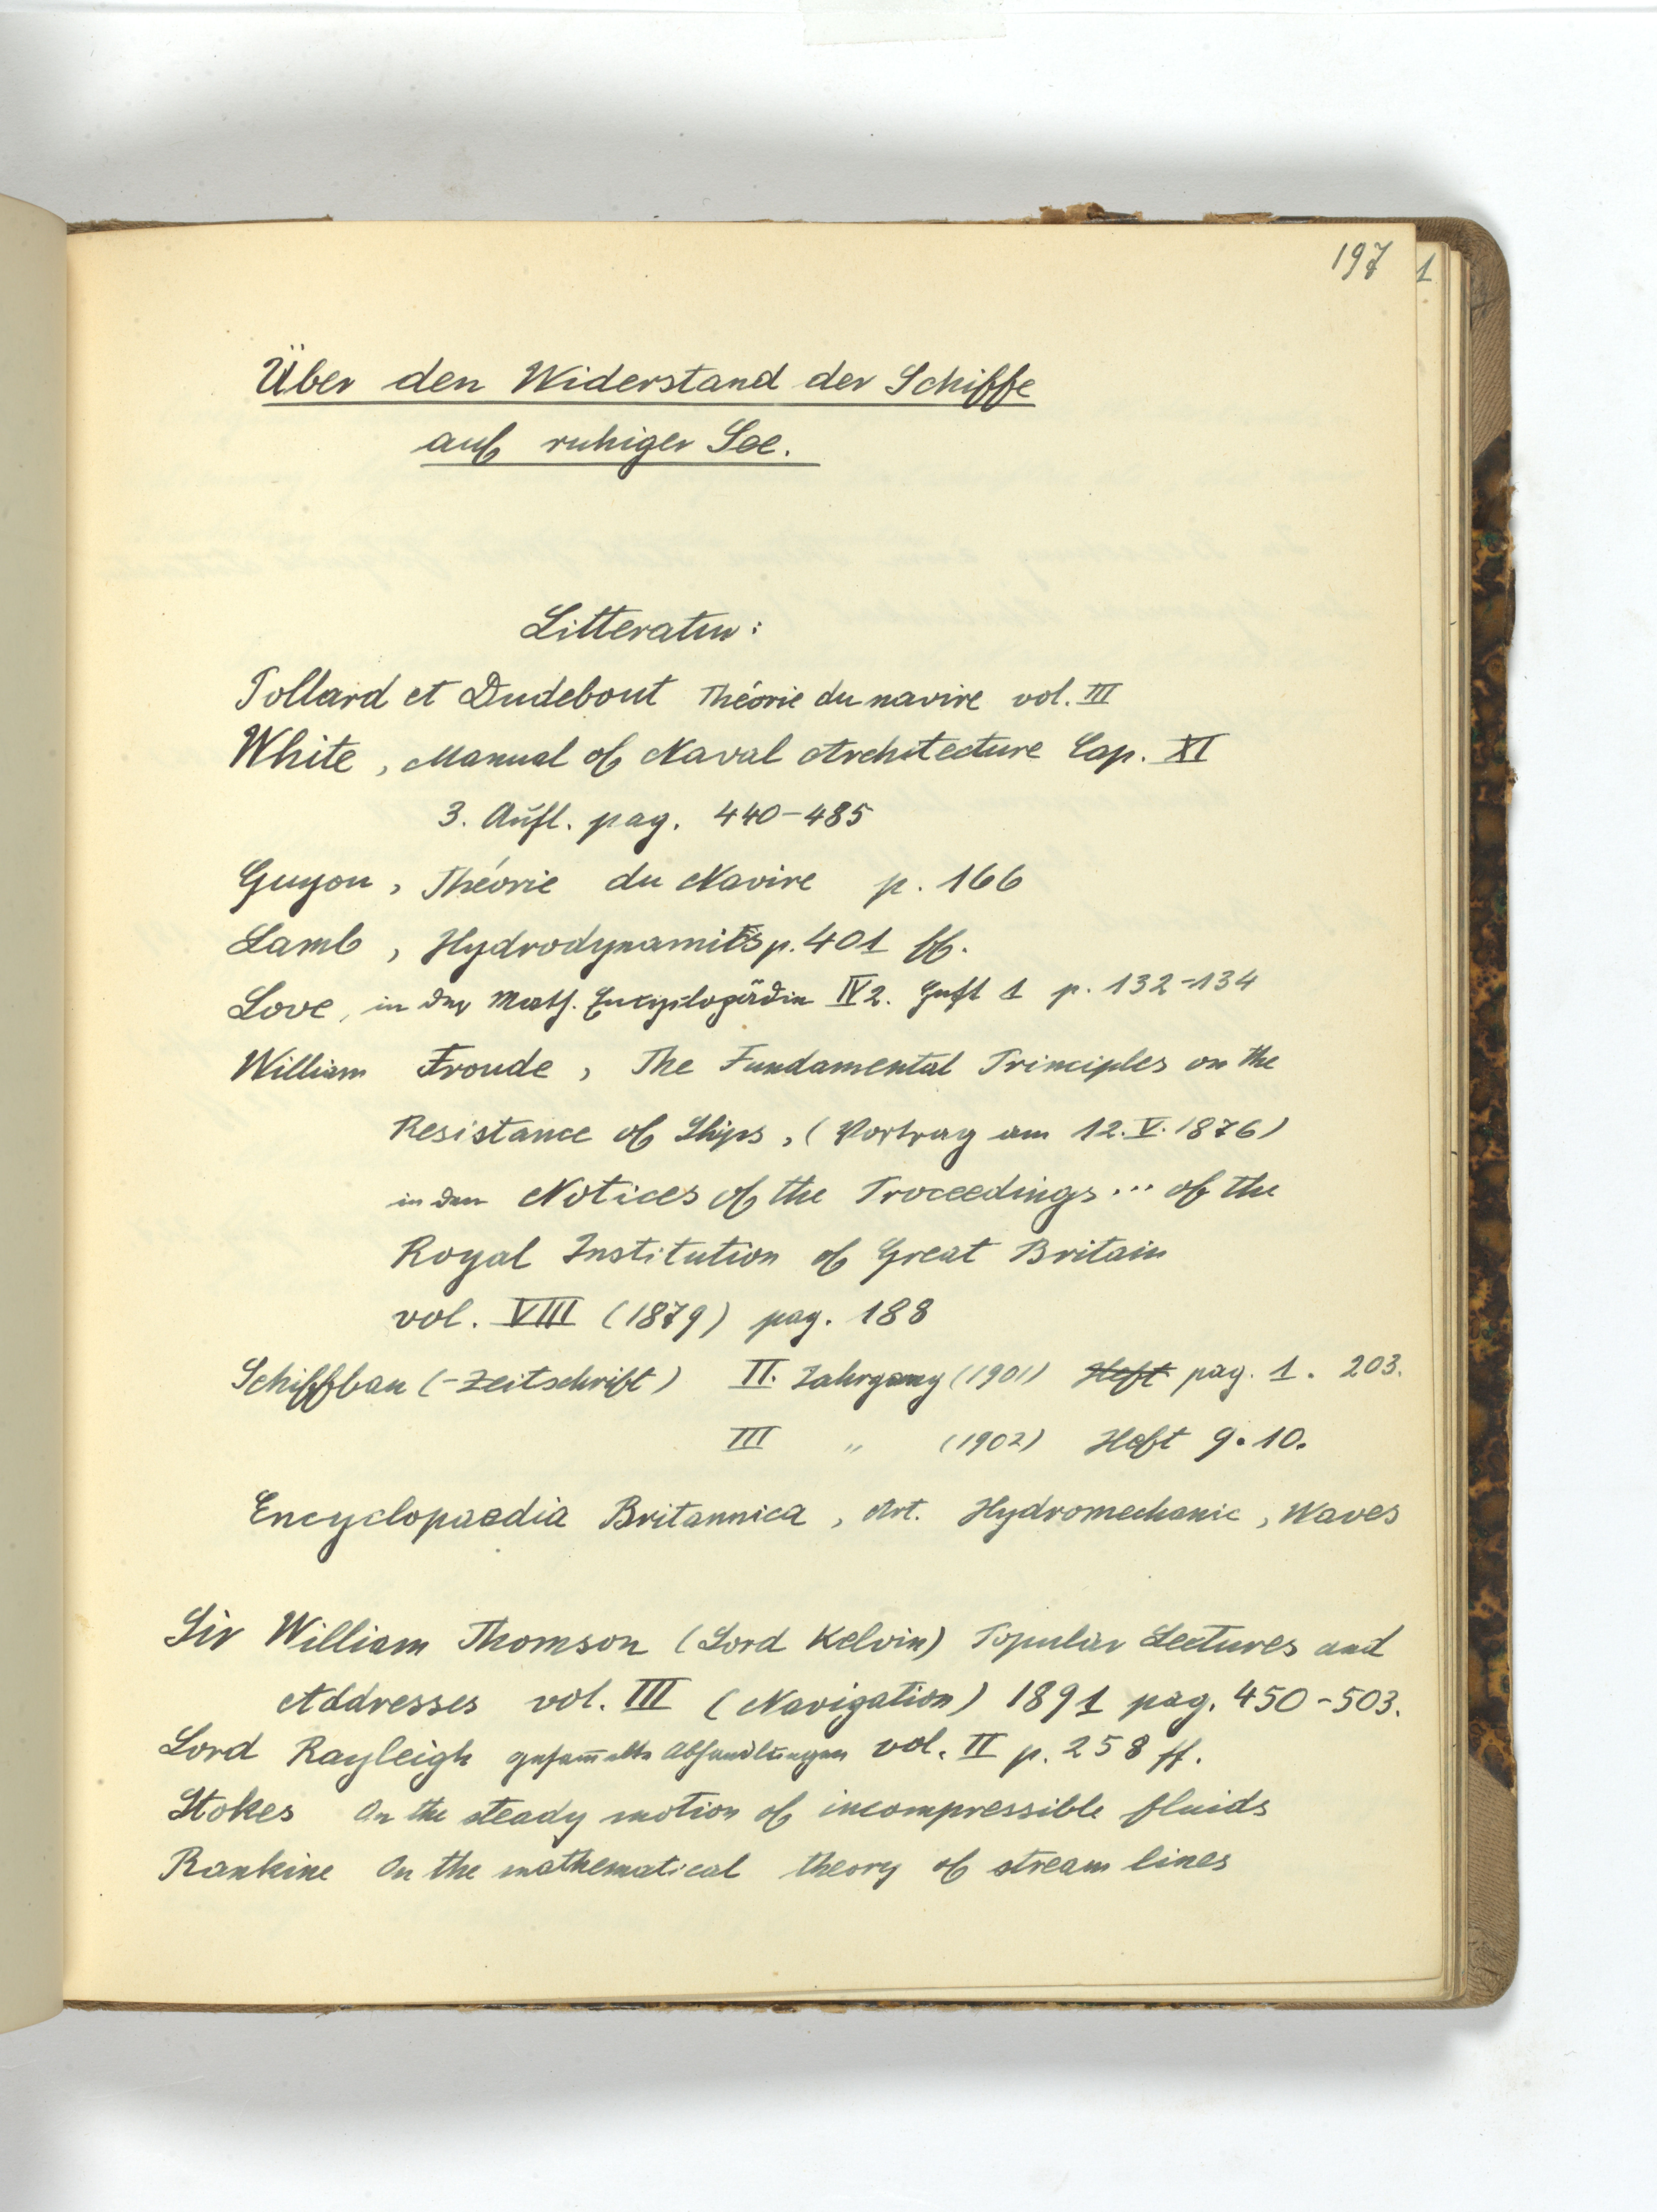 197
1
Über den Widerstand der Schiffe
auf ruhiger See.
Litteratur:
Pollard et Dudebout Théorie du navire vol. III
White, Manual of Naval Architecture Cap. XI
3. Aufl. pag. 440-485
Guyou, Théorie du Navire p. 166
Lamb, Hydrodynamics p. 401 ff.
Love, in der Math. Encyklopädie IV 2. Heft 1 p. 132-134
William Froude, The Fundamental Principles on the
Resistance of Ships, (Vortrag am 12. V. 1876)
in den Notices of the Proceedings ... of the
Royal Institution of Great Britain
vol. VIII (1879) pag. 188
Schiffbau (-Zeitschrift) II. Jahrgang (1901) Heft pag. 1. 203.
III " (1902) Heft 9. 10.
Encyclopaedia Britannica, Art. Hydromechanic, Waves
Sir William Thomson (Lord Kelvin) Popular Lectures and
Addresses vol. III (Navigation) 1891 pag. 450-503.
Lord Rayleigh gesam̅elte Abhandlungen vol. II p. 258 ff.
Stokes On the steady motion of incompressible fluids
Rankine On the mathematical theory of stream lines